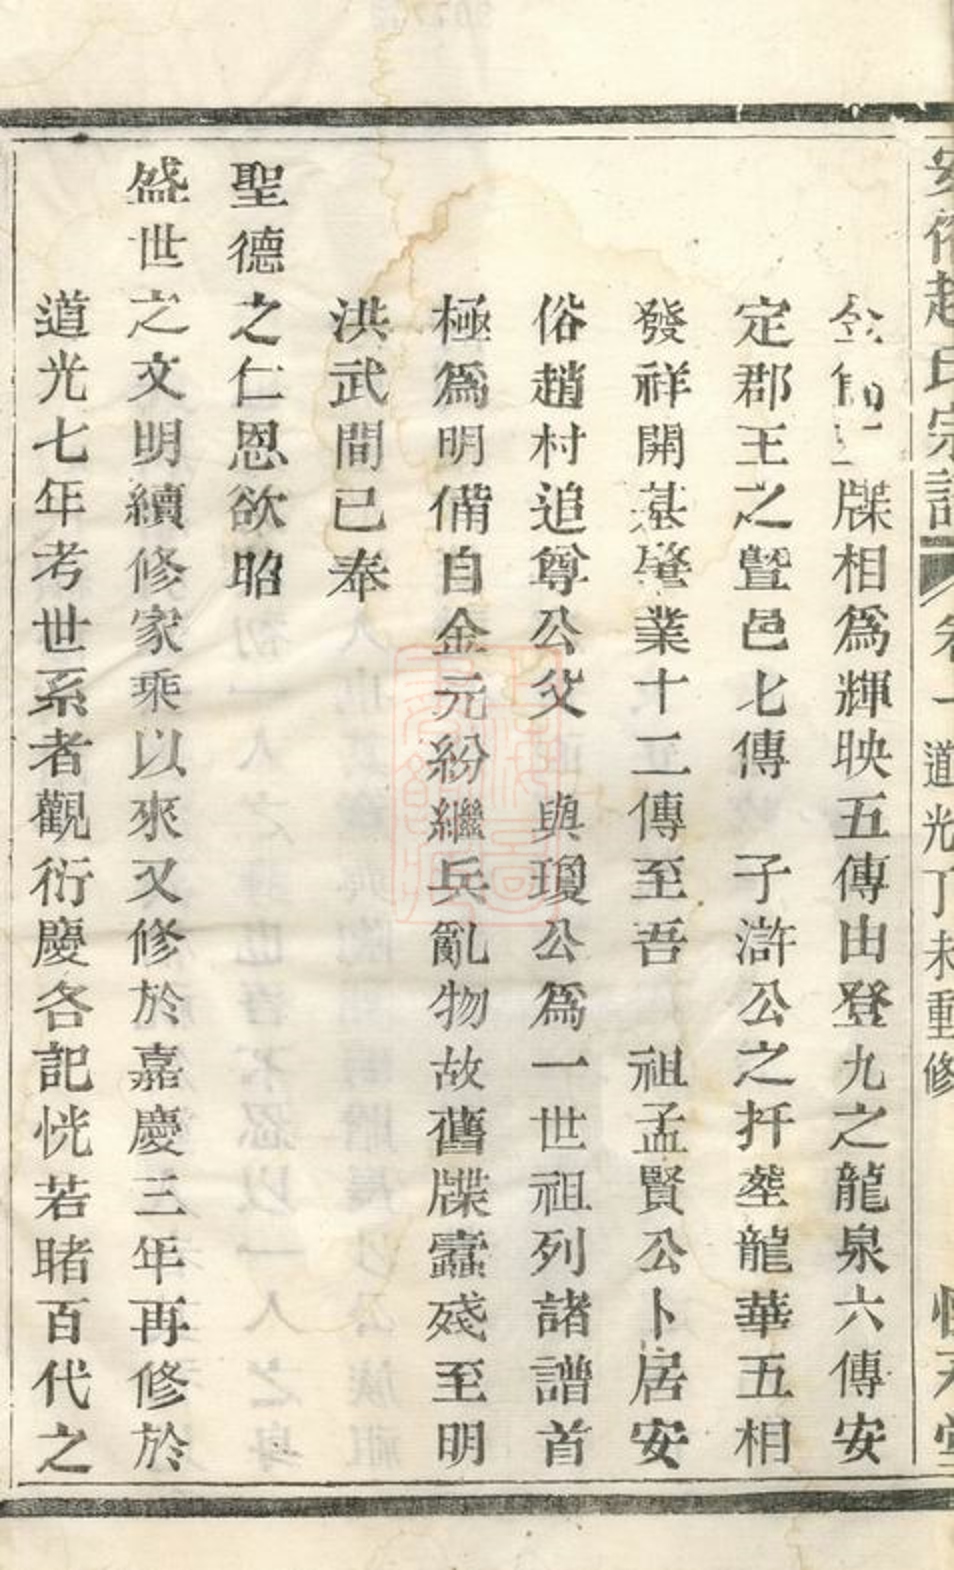 安俗趙氏宗譜 卷一 道光丁未重修 惇天堂
牒相爲輝映五傳由登九之龍泉六傳安
定郡王之暨邑七傳 子滸公之扞塟龍華五相
發祥開基肇業十二傳至吾 祖孟賢公卜居安
俗趙村追尊公父 與瓊公爲一世祖列諸譜首
極爲明備自金元紛繼兵亂物故舊牒蠹殘至明
洪武間已奉
聖德之仁恩欲昭
盛世之文明續修家乘以來又修於嘉慶三年再修於
道光七年考世系者觀衍慶各記恍若睹百代之